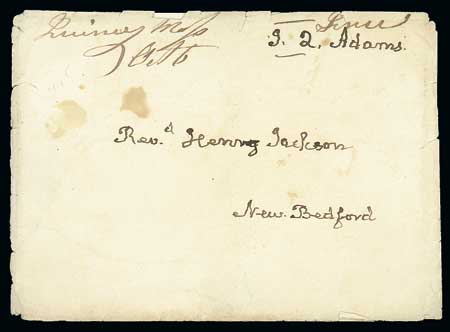 Quincy Mass
Free
Oct 6
J. Q. Adams.
Rev.d Henry Jackson
New. Bedford